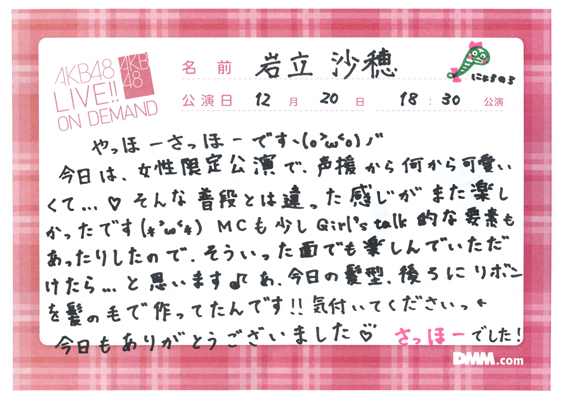 AKB48
LIVE!!
ON DEMAND
AKB
48
名前 岩立 沙穂
にょろのろ
公演日 12月 20日 18:30 公演
やっほーさっほーです丶(o'ω'o)ﾉ"
今日は、女性限定公演で、声援から何から可愛い
くて...♡ そんな普段とは違った感じがまた楽し
かったです(*'ω'*) MCも少しGirl's talk 的な要素も
あったりしたので、そういった面でも楽しんでいただ
けたら...と思います♪ あ、今日の髪型、後ろにリボン
を髪の毛で作ってたんです!!気付いてくださいっ←
今日もありがとうございました♡ さっほーでした!
DMM.com